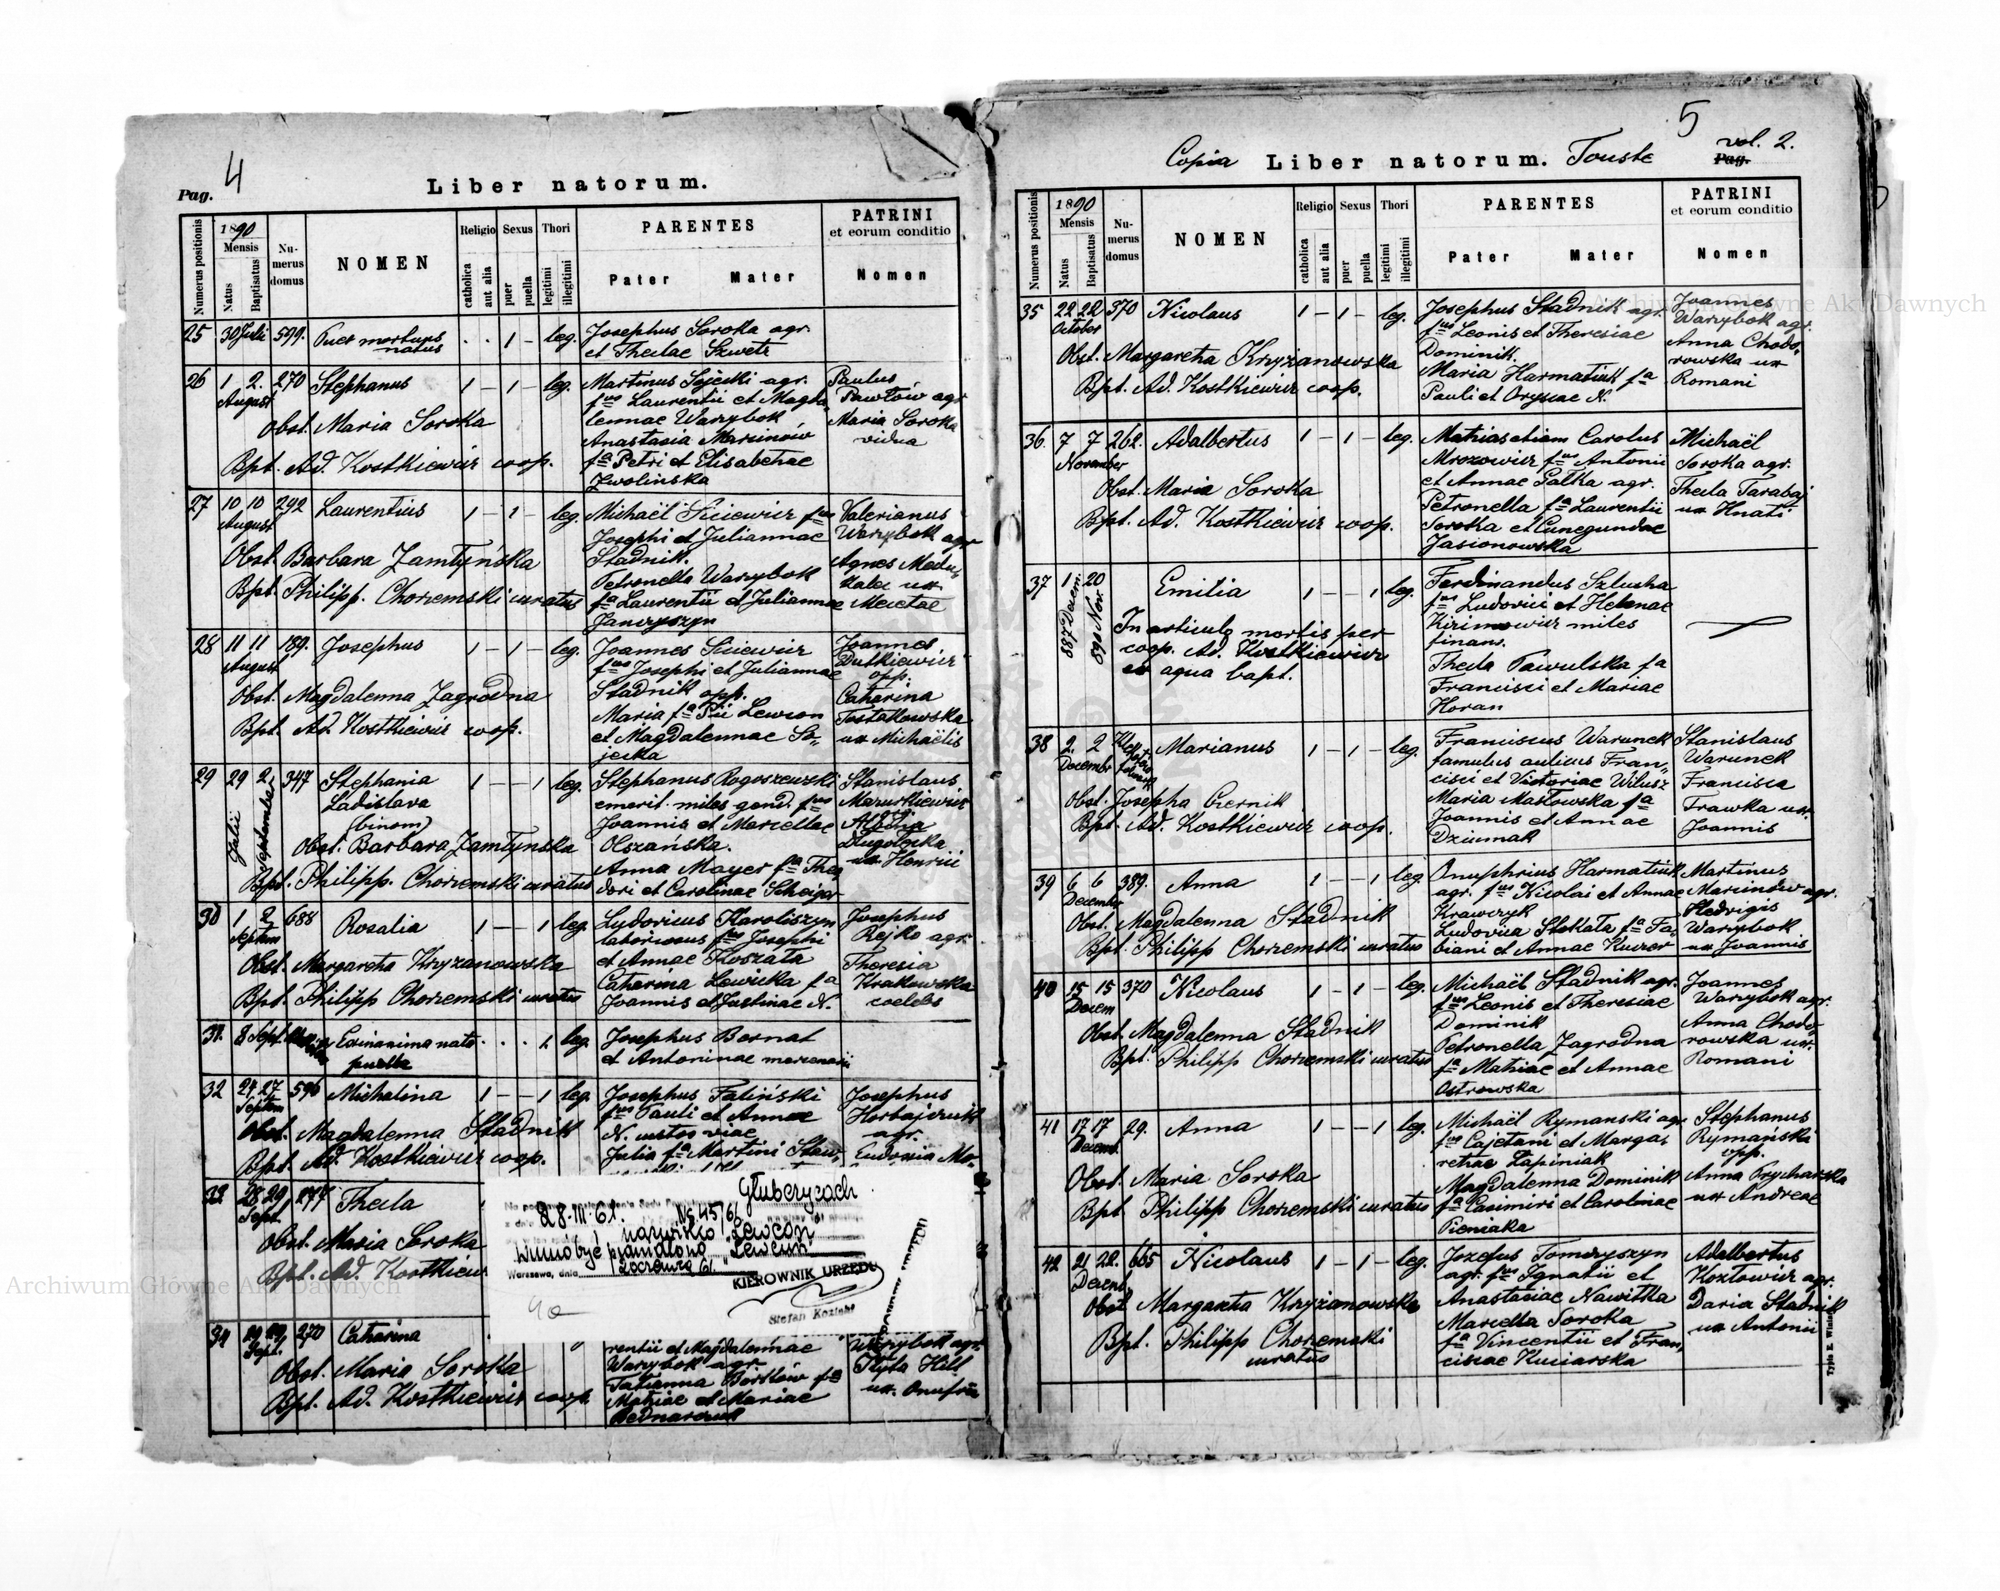 Pag. 4
Liber natorum.
Numerus positionis
1890
Mensis
Natus
Baptisatus
Numerus domus
NOMEN
Religio
catholica
aut alia
Sexus
puer
puella
Thori
legitimi
illegitimi
PARENTES
Pater Mater
PATRINI
et eorum conditio
Nomen
25 30 Juli 599. Puer mortuus 1 leg. Josephus Soroka agr.
natus et Theclae Szwetz
26 1 2. 270 Stephanus 1 — 1 — leg. Martinus Sojecki agr. Paulus
August fus Laurentii et Magda- Pawłów agr
Obst. Maria Soroka lennae Warybok Maria Soroka
Anastasia Marcinów vidua
Bpt. Ad. Kostkiewicz coop. fa Petri et Elisabethae
Zwolinska
27 10 10 292 Laurentius 1 — 1 — leg. Michaël Siciewicz fus Valerianus
August Josephi et Juliannae Warybok agr
Obst. Barbara Zamłyńska Stadnik. Agnes
Bpt. Philipp. Chorzemski curatus Petronella Warybok
fa Laurentii et Juliannae
Janczyszyn
28 11 11 189. Josephus 1 — 1 — leg. Joannes Siciewicz Joannes
August fus Josephi et Juliannae Dutkiewicz
Obst. Magdalenna Zagrodna Stadnik opp. opp.
Maria fa Pii Lewcon Catharina
Bpt. Ad. Kostkiewicz coop. et Magdalennae So- Tostakowska
jecka ux Michaëlis
29 29 2 347 Stephania 1 — — 1 leg. Stephanus Rogoszewski Stanislaus
Julii September Ladislava emerit. miles gend. fus Mazurkiewicz
(binom) Joannis et Marcellae
Obst. Barbara Zamłynska Olszańska. Długołęcka
Bpt. Philipp. Chorzemski curatus Anna Mayer fa Theo ux Henrici
dori et Carolinae
30 1 2 688 Rosalia 1 — — 1 leg. Ludovicus Karoliszyn Josephus
Septem laboriosus fus Josephi Rejko agr.
Obst. Margaretha Kryzanowska et Annae Koszata Theresia
Bpt. Philipp Chorzemski curatus Catharina Lewicka fa Krakowska
Joannis et Justinae N. coelebs
31. 8 Sept. Exinanima nata 1 leg. Josephus Bernat
puella et Antoninae mercenarii
32 24 27 596 Michalina 1 — — 1 leg. Josephus Faliński Josephus
Septem fus Pauli et Annae
Obst. Magdalenna Stadnik N. custos viae agr.
Bpt. Ad. Kostkiewicz coop. Julia fa Martini Eudoxia
33 28 29 277 Thecla
Sept.
Obst. Maria Soroka
Bpt. Ad. Kostkiew
Głubczycach.
28-III-61. Nr 45/61
nazwisko "Lewcon"
winno być pramatono "Lewcun"
Warszawa, dnia
KIEROWNIK URZĘDU
Stefan Koziński
34 29 29 270 Catharina rentii et Magdalennae Warybok agr.
Sept. Warybok agr.
Obst. Maria Soroka Tatianna Borsków fa ux. Onufrii
Bpt. Ad. Kostkiewicz coop. Matiae et Mariae
Bednarczuk
5
Copia Liber natorum. Touste vol. 2.
Pag.
Numerus positionis
1890
Mensis
Natus
Baptisatus
Numerus domus
NOMEN
Religio
catholica
aut alia
Sexus
puer
puella
Thori
legitimi
illegitimi
PARENTES
Pater Mater
PATRINI
et eorum conditio
Nomen
35 22 22 370 Nicolaus 1 — 1 — leg. Josephus Stadnik agr. Joannes
October fus Leonis et Theresiae Warybok agr.
Obst. Margaretha Kryzanowska Dominik. Anna Chodo-
Maria Harmatiuk fa rowska ux
Bpt. Ad. Kostkiewicz coop. Pauli et Orysiae N. Romani
36. 7 7 262. Adalbertus 1 — 1 — leg. Mathias etiam Carolus Michaël
November Mrozowicz fus Antonii Soroka agr.
Obst. Maria Soroka et Annae Gałka agr. Thecla Tarabaj
Bpt. Ad. Kostkiewicz coop. Petronella fa Laurentii ux Hnati
Soroka et Cunegundae
Jasionowska
37 1 20 Emilia 1 — — 1 leg. Ferdinandus Szlucha
887 Decem. 890 Nov. fus Ludovici et Helenae
In articulo mortis per Kirimowicz miles
coop. Ad. Kostkiewicz finans.
ex aqua bapt. Thecla Pawulska fa
Francisci et Mariae
Horan
38 2. 2 Marianus 1 — 1 — leg. Franciscus Warunek Stanislaus
Decembr famulus aulicus Fran- Warunek
Obst. Josepha Czernik cisci et Victoriae Wilusz Francisca
Bpt. Ad. Kostkiewicz coop. Maria Masłowska fa Frawka ux.
Joannis et Annae Joannis
Dziumak
39 6 6 389. Anna 1 — — 1 leg. Onuphrius Harmatiuk Martinus
December agr. fus Nicolai et Annae Marcinów agr.
Obst. Magdalenna Stadnik Krawczyk Hedvigis
Bpt. Philipp Chorzemski curatus Ludovica Stokata fa Fa- Warybok
biani et Annae Kuczer ux Joannis
40 15 15 370 Nicolaus 1 — 1 — leg. Michaël Stadnik agr. Joannes
Decem fus Leonis et Theresiae Warybok agr.
Obst. Magdalenna Stadnik Dominik Anna Chodo-
Bpt. Philipp Chorzemski curatus Petronella Zagrodna rowska ux.
fa Mathiae et Annae Romani
Ostrowska
41 17 17 29. Anna 1 — — 1 leg. Michaël Rymanski agr Stephanus
Decemb. fus Cajetani et Marga- Rymański
Obst. Maria Soroka rethae Łapiniak opp.
Bpt. Philipp Chorzemski curatus Magdalenna Dominik Anna Prycharska
fa Casimiri et Carolinae ux Andreae
Pieniaka
42 21 22. 665 Nicolaus 1 — 1 — leg. Jozefus Tomczyszyn Adalbertus
Decemb. agr. fus Ignatii et Kozłowicz agr.
Obst. Margaretha Kryzanowska Anastasiae Nawitka Daria Stadnik
Bpt. Philipp Chorzemski Marcella Soroka ux Antonii
curatus fa Vincentii et Fran-
ciscae Kuciarska
Archiwum Główne Akt Dawnych
Archiwum Główne Akt Dawnych